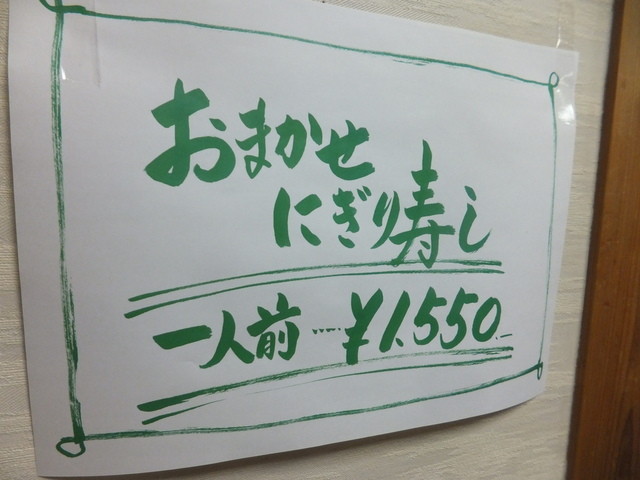 おまかせ
にぎり寿し
一人前……¥1.550.